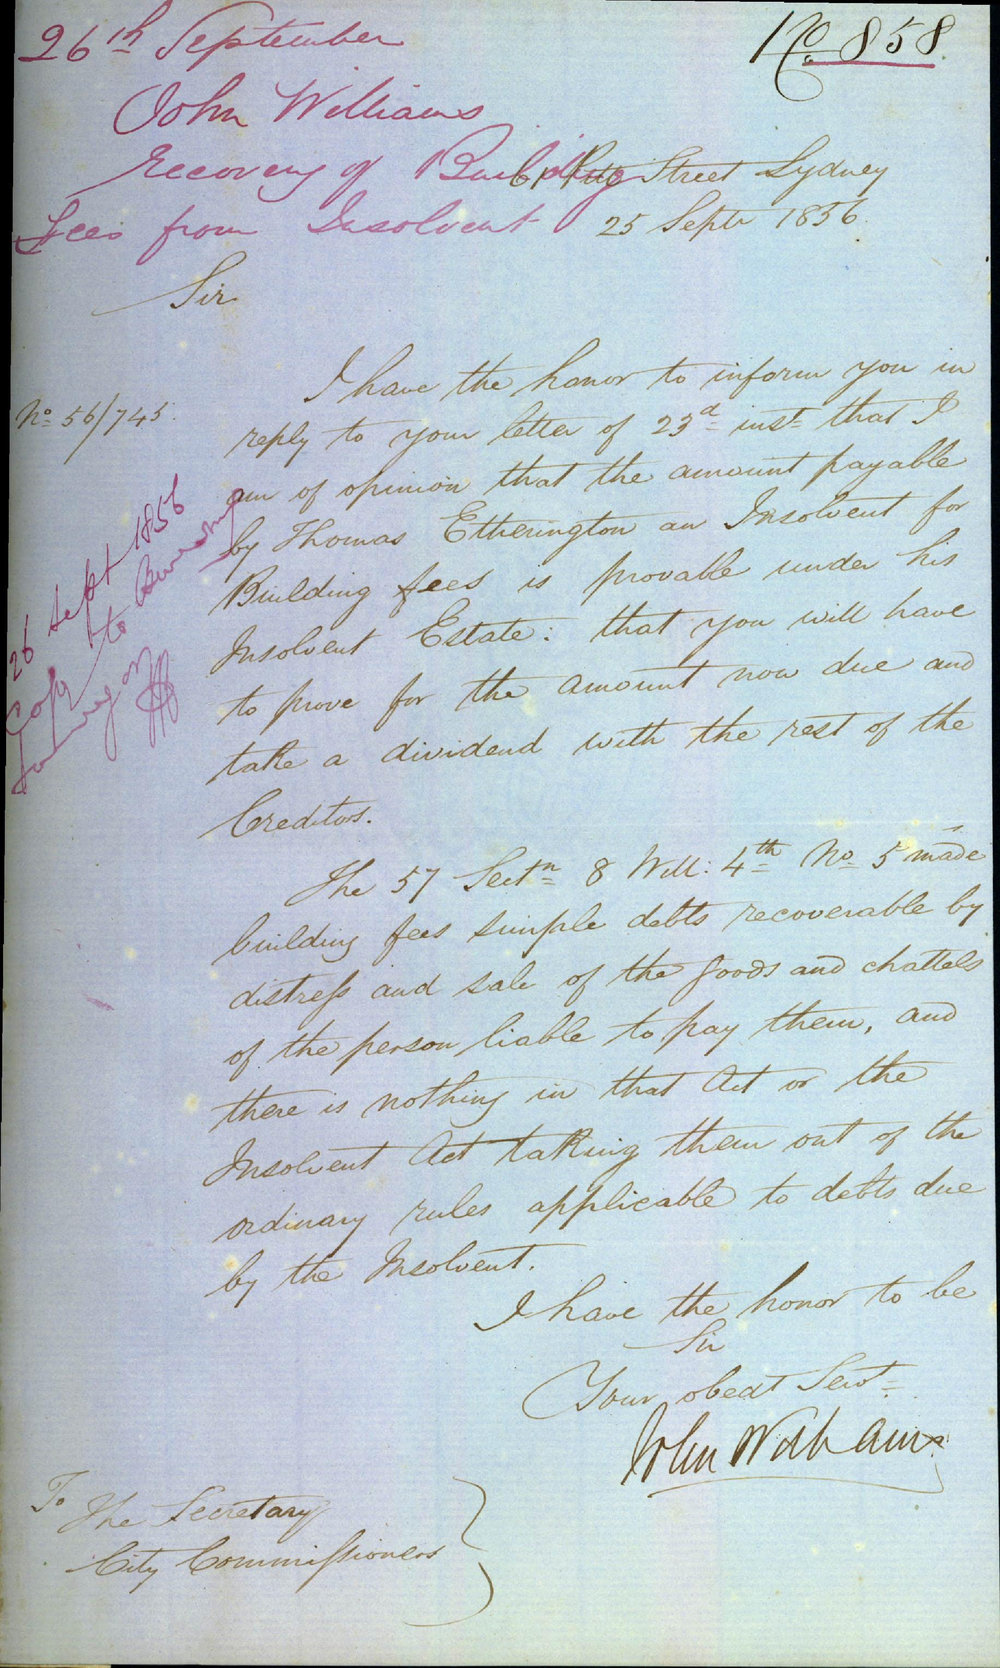 26th September
No. 858.
John Williams
Recovery of Building
Fees from Insolvent
Pitt Street Sydney
25 Septr 1856.
Sir
I have the honor to inform you in
No 56/745.
reply to your letter of 23d inst that I
am of opinion that the amount payable
by Thomas Etherington an Insolvent for
Building fees is provable under his
Insolvent Estate: that you will have
to prove for the amount now due and
take a dividend with the rest of the
Creditors.
26 Sept 1856
Copy to
The 57 Sectn 8 Will: 4th No 5 made
building fees simple debts recoverable by
distress and sale of the goods and chattels
of the person liable to pay them, and
there is nothing in that Act or the
Insolvent Act taking them out of the
ordinary rules applicable to debts due
by the Insolvent.
I have the honor to be
Sir
Your obedt Servt
John Williams
To
The Secretary
City Commissioners